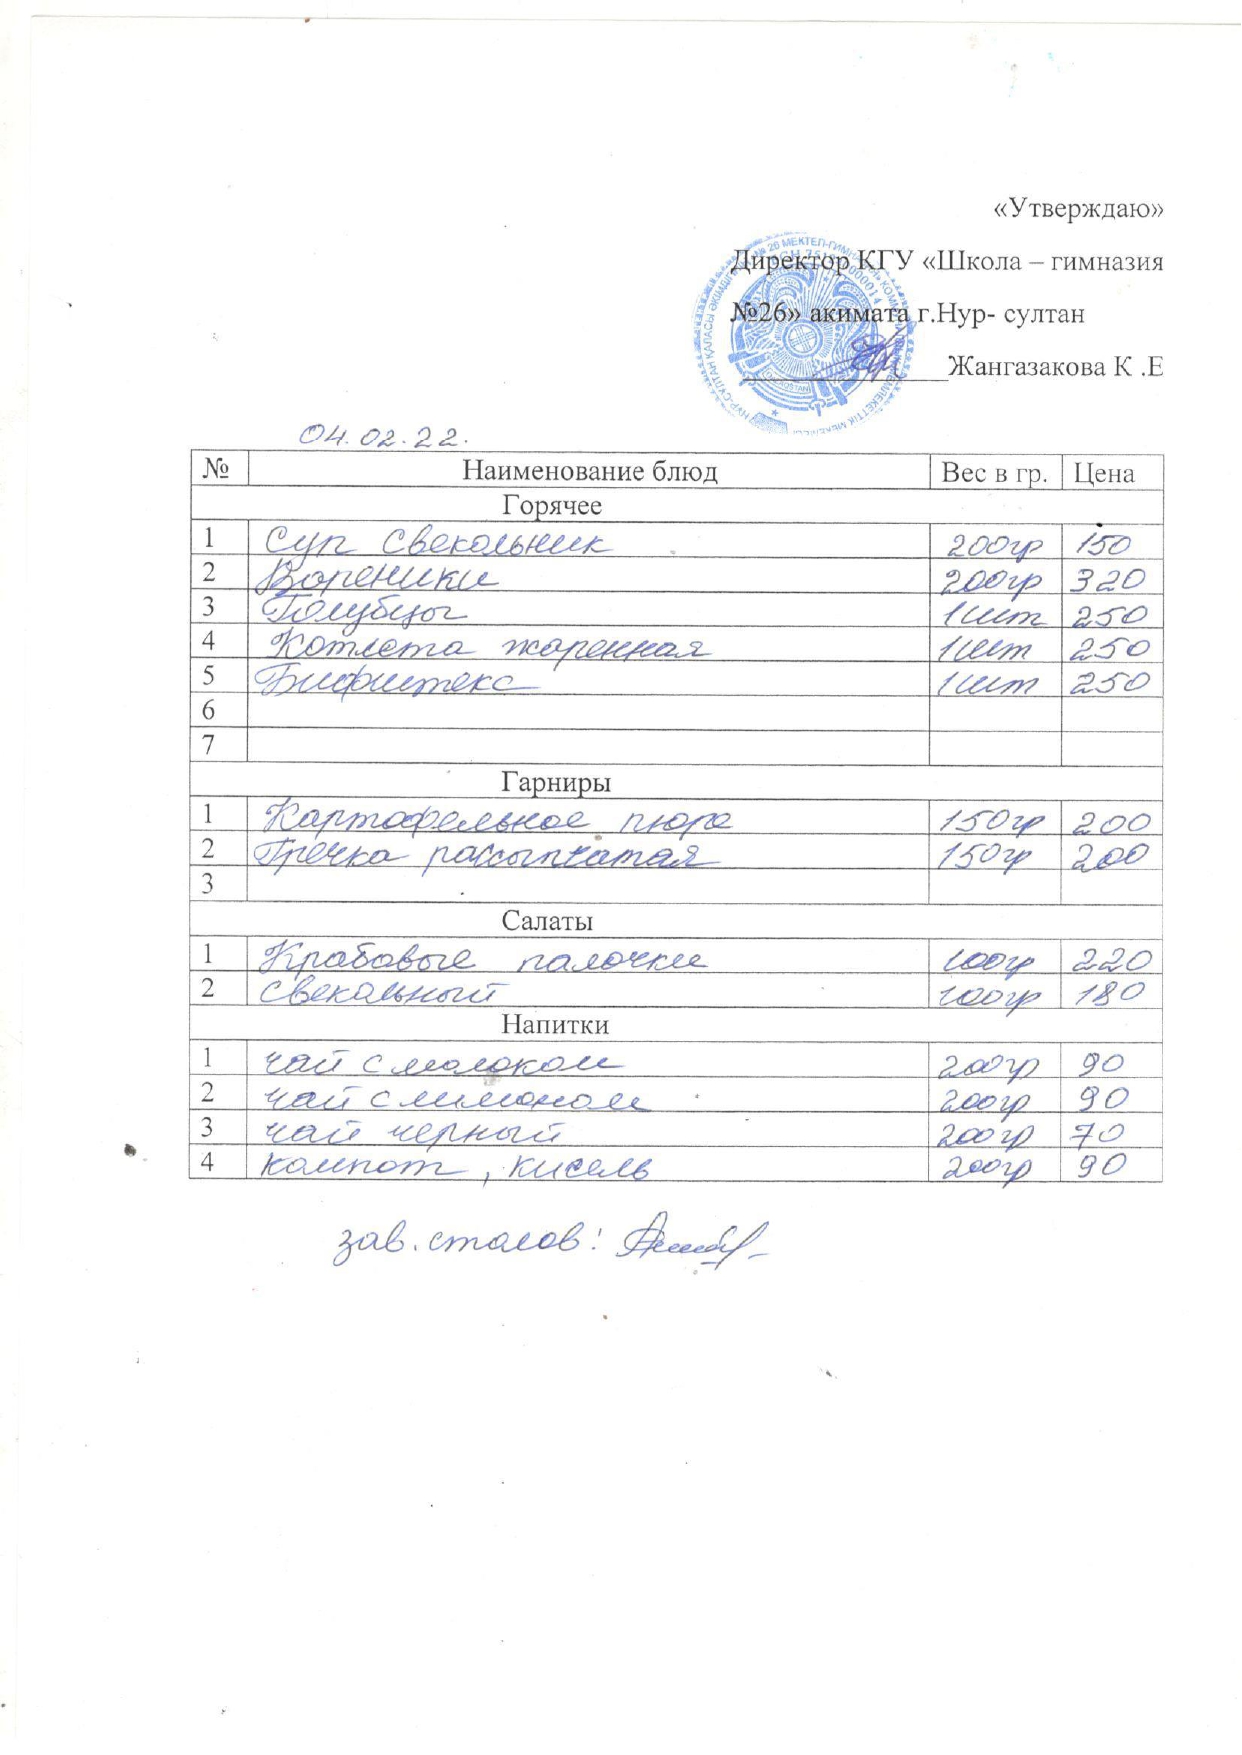 «Утверждаю»
Директор КГУ «Школа – гимназия
№26» акимата г.Нур- султан
Жангазакова К .Е
04.02.22.
№ Наименование блюд Вес в гр. Цена
Горячее
1 Суп Свекольник 200гр 150
2 Вореники 200гр 320
3 Голубцы 1шт 250
4 Котлета жаренная 1шт 250
5 Бифштекс 1шт 250
6
7
Гарниры
1 Картофельное пюре 150гр 200
2 Гречка рассыпчатая 150гр 200
3
Салаты
1 Крабовые палочки 100гр 220
2 Свекольный 100гр 180
Напитки
1 чай с молоком 200гр 90
2 чай с лимоном 200гр 90
3 чай черный 200гр 70
4 компот, кисель 200гр 90
зав. столов: